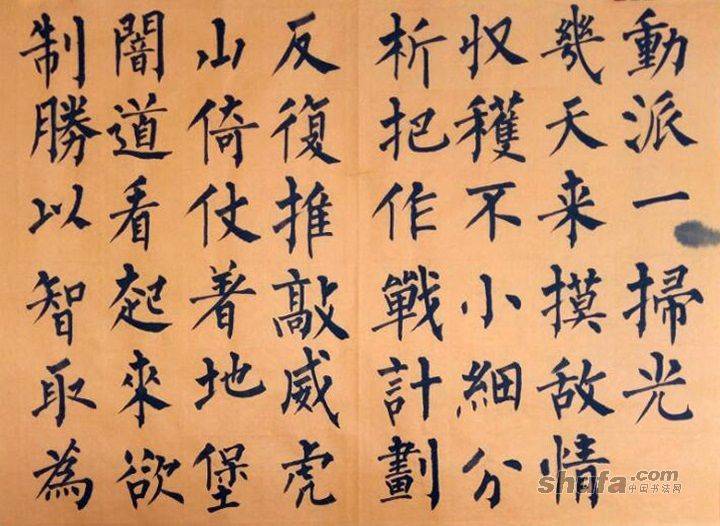 動派一掃光
幾天来摸敌情
収穫不小細分
析把作戰計劃
反復推敲威虎
山倚仗着地堡
闇道看起來欲
制勝以智取為
shufa.com
中国书法网